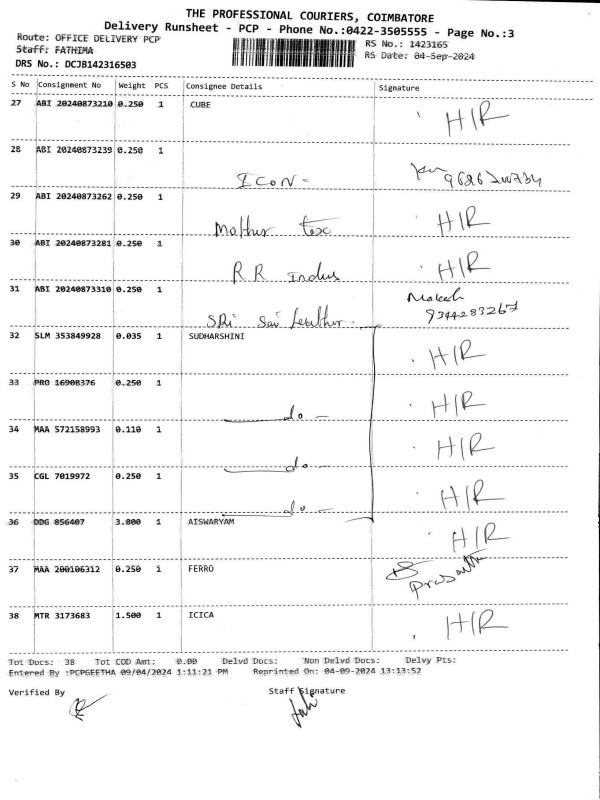 THE PROFESSIONAL COURIERS, COIMBATORE
Delivery Runsheet - PCP - Phone No.:0422-3505555 - Page No.:3
Route: OFFICE DELIVERY PCP
RS No.: 1423165
Staff: FATHIMA
RS Date: 04-Sep-2024
DRS No.: DCJB142316503
S No Consignment No Weight PCS Consignee Details Signature
27 ABI 20240873210 0.250 1 CUBE H/R
28 ABI 20240873239 0.250 1
ICON-
29 ABI 20240873262 0.250 1 H/R
Mathur Tex
30 ABI 20240873281 0.250 1 H/R
RR Indus
31 ABI 20240873310 0.250 1
9344283267
SRi Sai Leather
32 SLM 353849928 0.035 1 SUDHARSHINI H/R
33 PRO 16908376 0.250 1 H/R
do -
34 MAA 572158993 0.110 1 H/R
do -
35 CGL 7019972 0.250 1 H/R
do -
36 DDG 856407 3.800 1 AISWARYAM H/R
37 MAA 200106312 0.250 1 FERRO
Prasanth
38 MTR 3173683 1.500 1 ICICA H/R
Tot Docs: 38 Tot COD Amt: 0.00 Delvd Docs: Non Delvd Docs: Delvy Pts:
Entered By :PCPGEETHA 09/04/2024 1:11:21 PM Reprinted On: 04-09-2024 13:13:52
Verified By Staff Signature